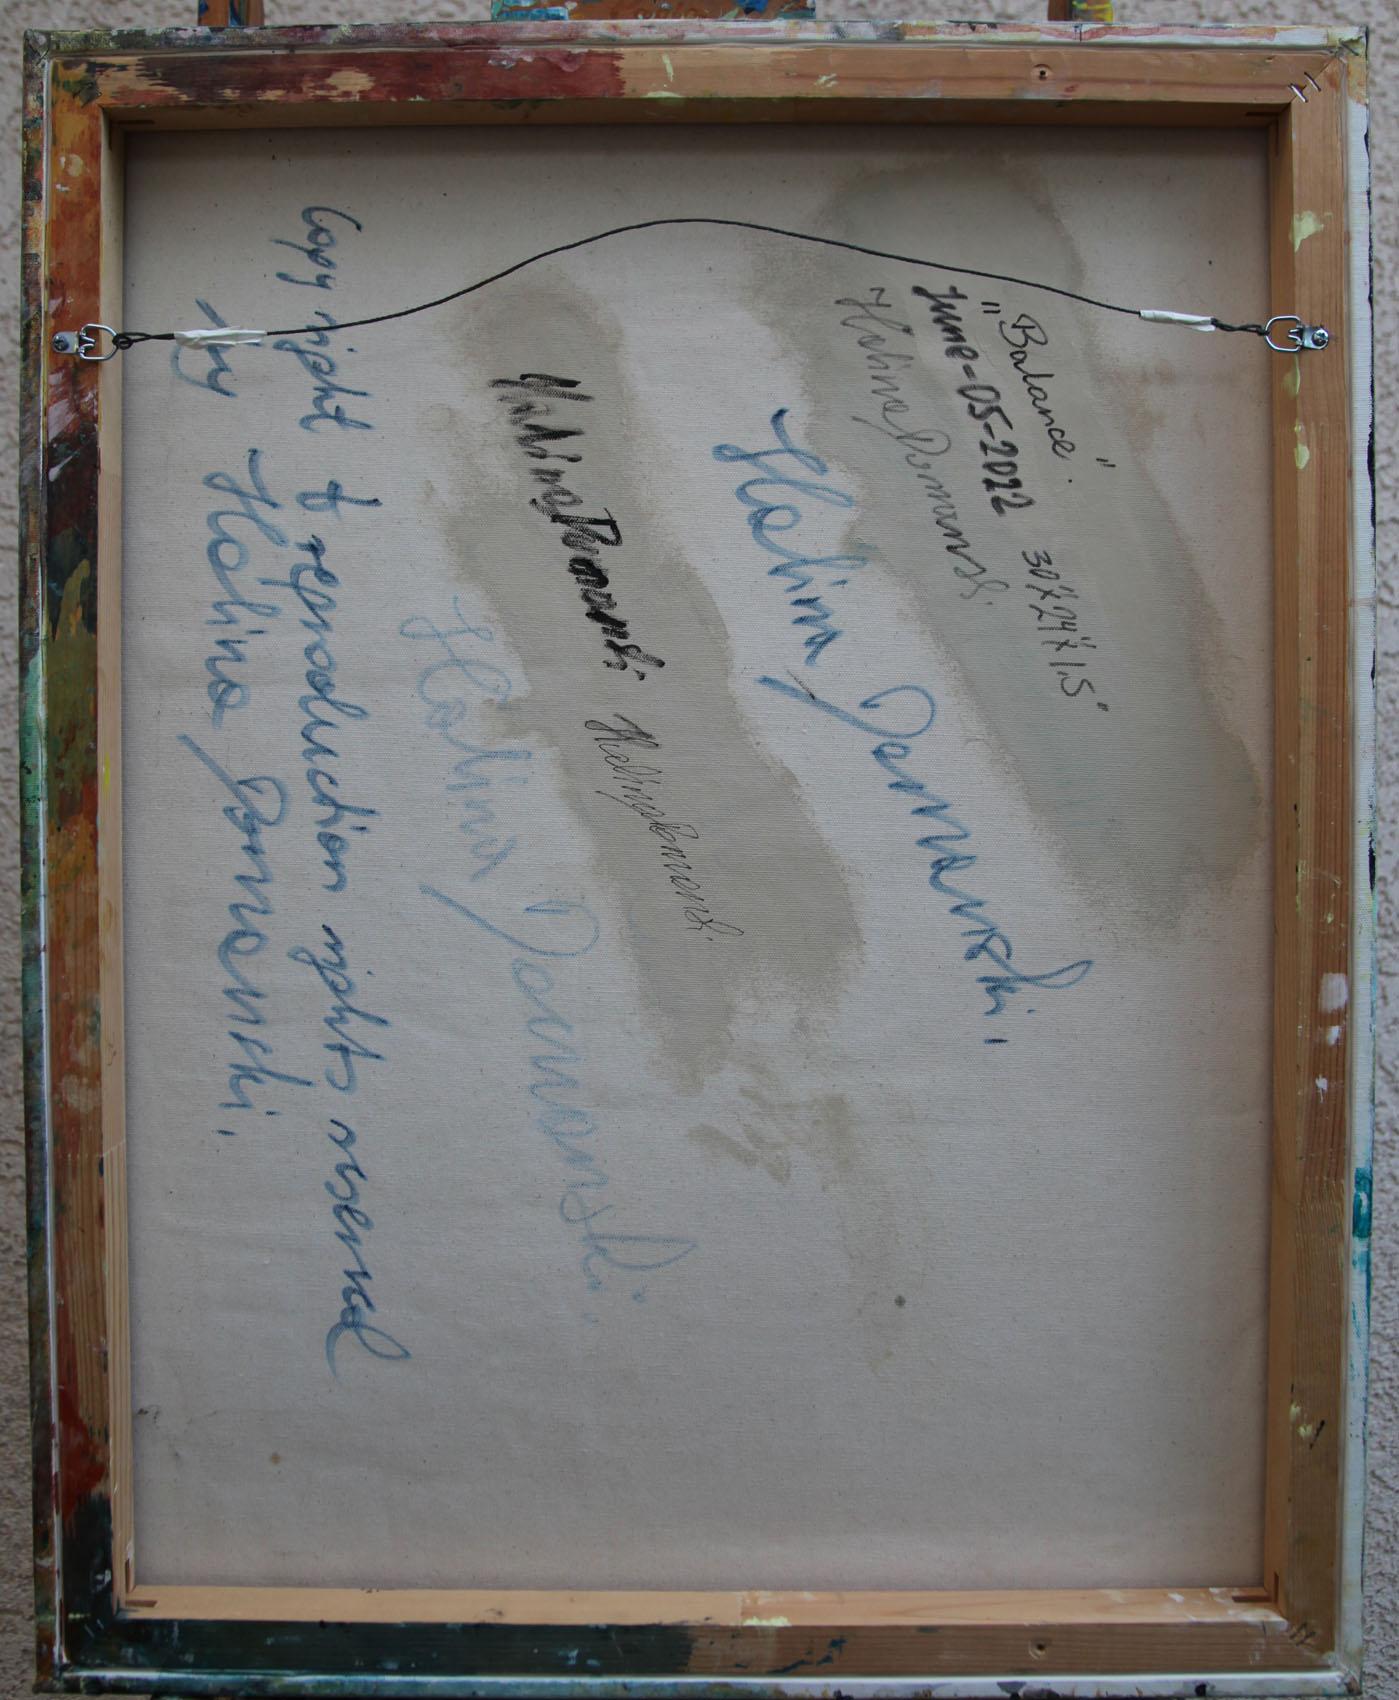 "Balance"
30"x24"x1,5"
June-05-2022
Halina Domanski
Halina Domanski
Halina Domanski
Halina Domanski
Halina Domanski
Copy right & reproduction rights reserved
by Halina Domanski